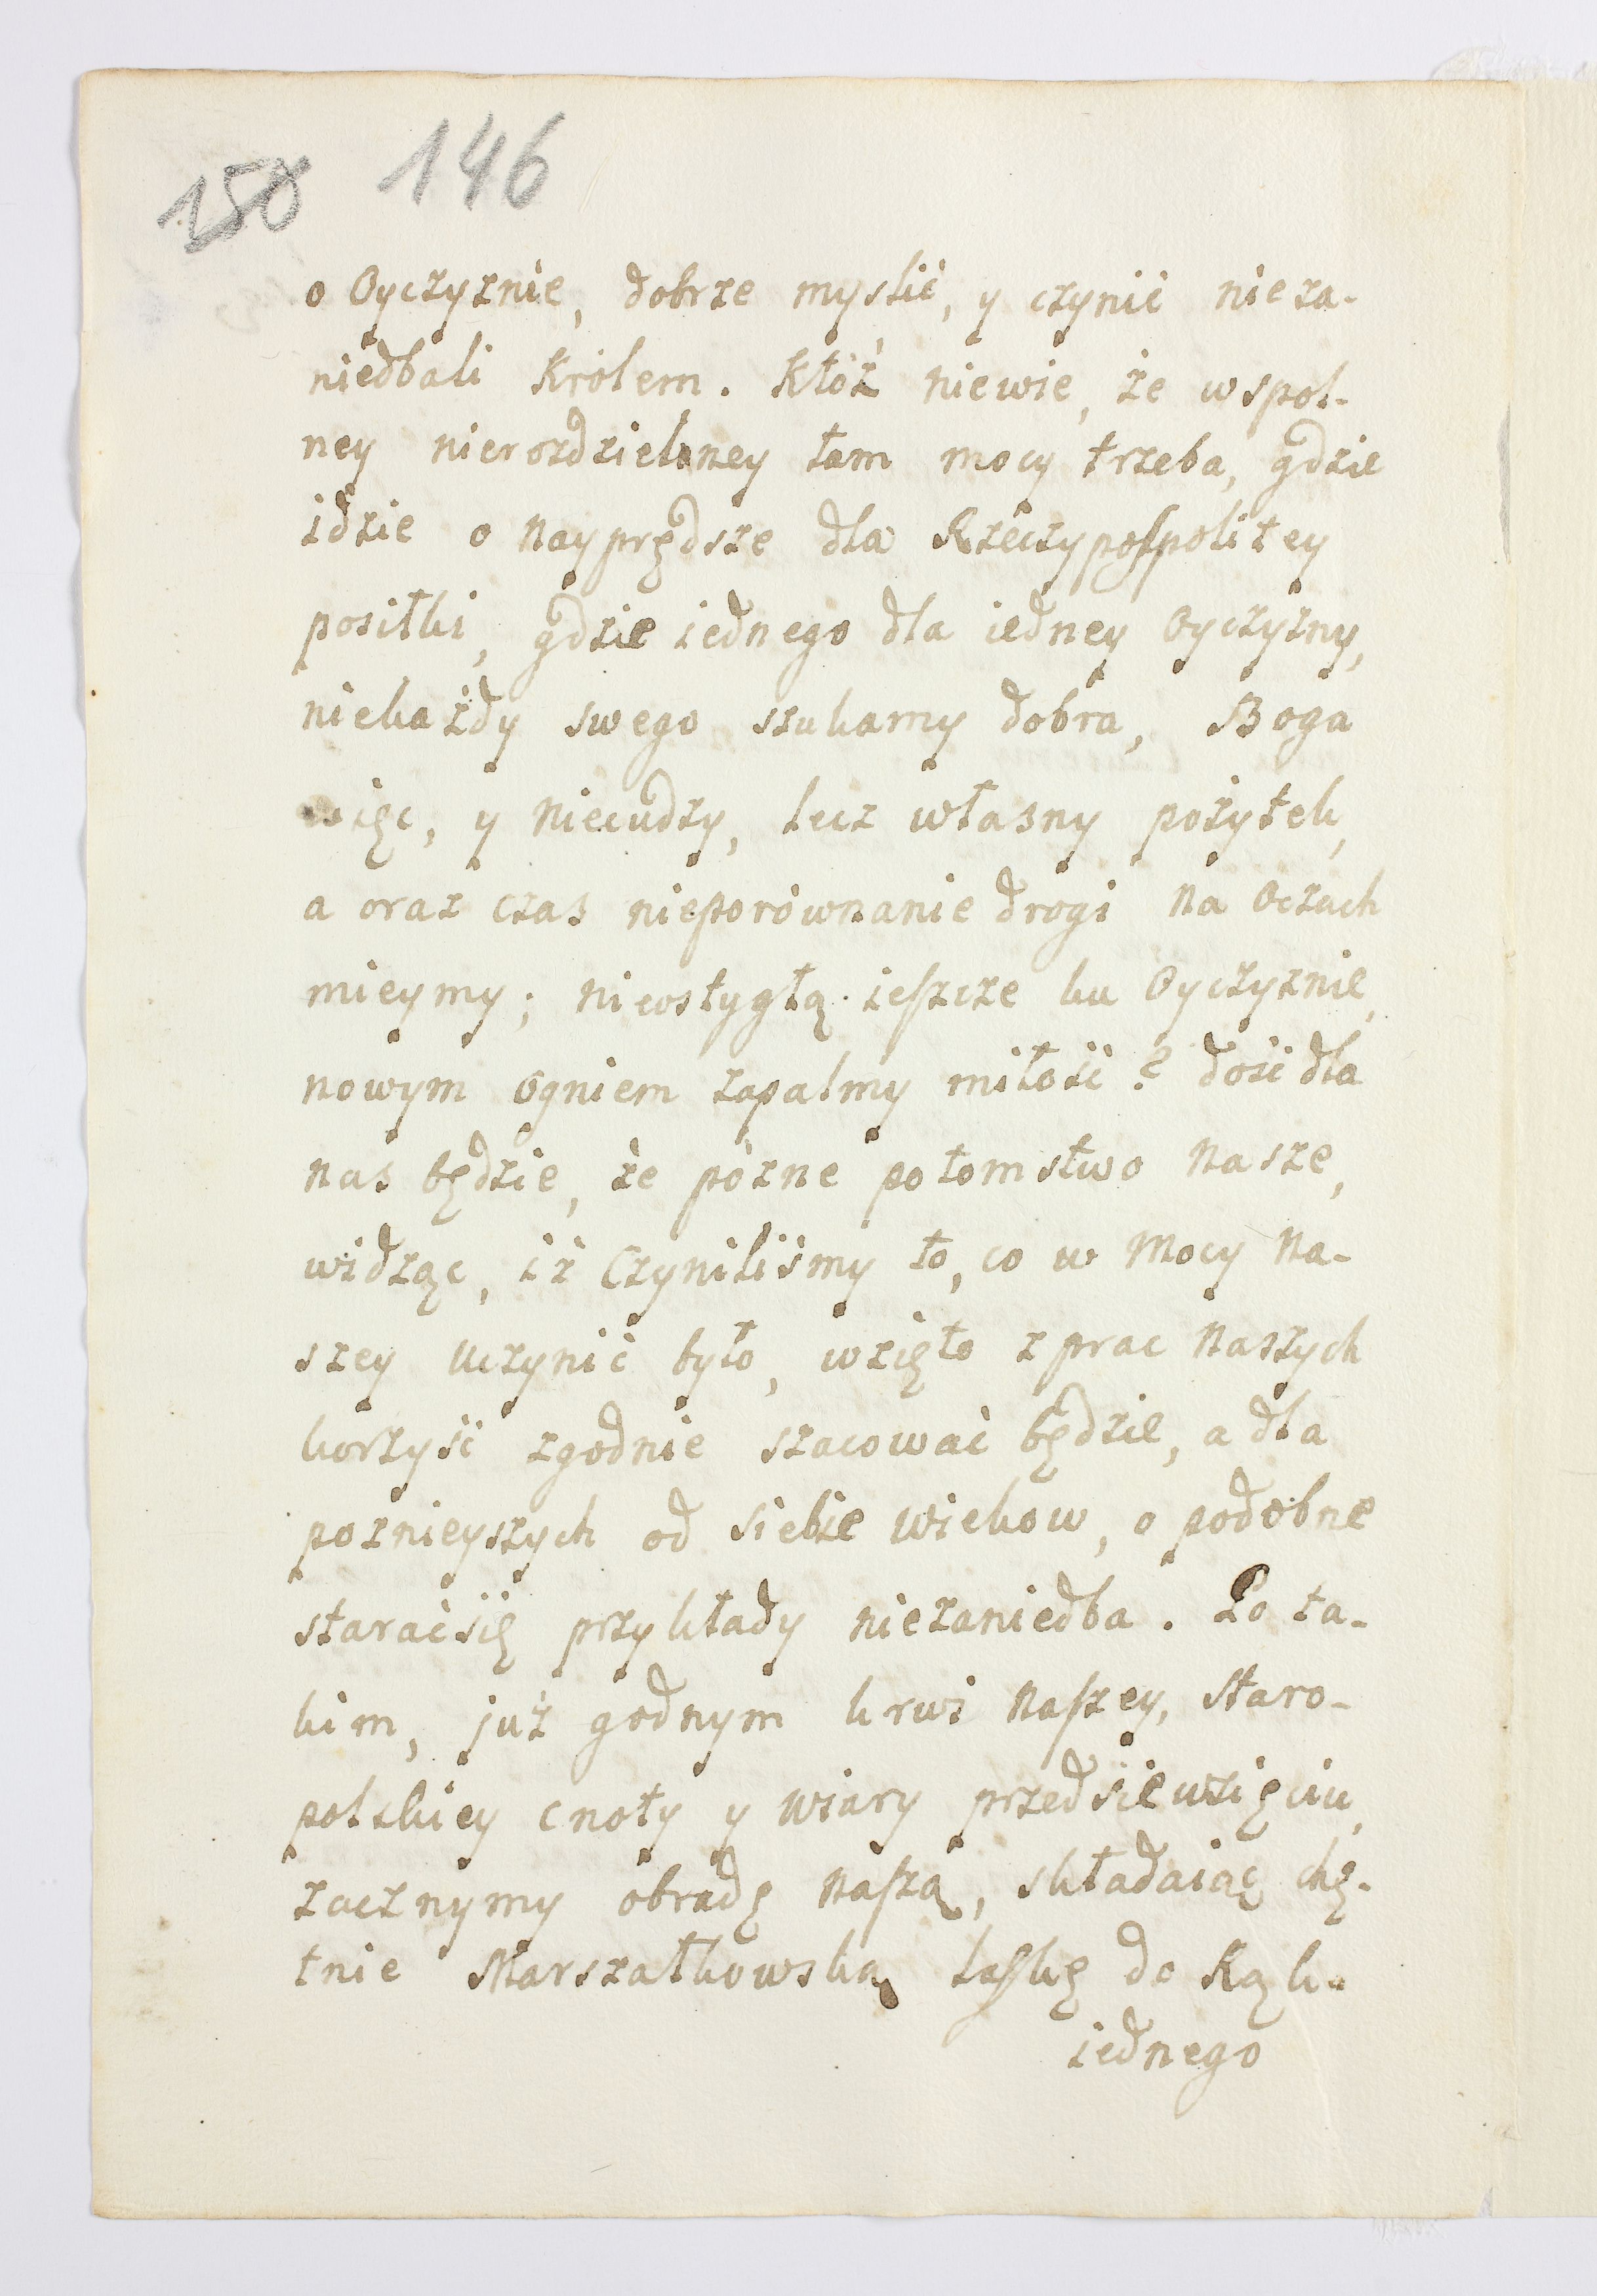 150 146
o Oyczyznie, dobrze myslić, y czynić nieza-
niedbali Królem. Któż niewie, że wspol-
ney nierozdzielney tam mocy trzeba, gdzie
idzie o nayprędsze dla Rzeczypospolitey
posiłki, gdzie iednego dla iedney Oyczyzny,
niekażdy swego szukamy dobra, Boga
więc, y niecudzy, lecz własny pożytek,
a oraz czas nieporównanie drogi na oczach
mieymy; niewstygłą ieszcze ku Oyczyznie,
nowym ogniem zapalmy miłość? dość dla
nas będzie, że pózne potomstwo nasze,
widząc, iż czyniliśmy to, co w mocy na-
szey uczynić było, wzięto z prac naszych
korzyść zgodnie szacować będzie, a dla
poznieyszych od siebie wiekow, o podobne
staraćsię przykłady niezaniedba. Po ta-
kim, już godnym krwi naszey, staro-
polskiey cnoty y wiary przedsiewzięciu,
zacznymy obradę naszą, składaiąc chę-
tnie Marszałkowską laskę do Rąk-
iednego